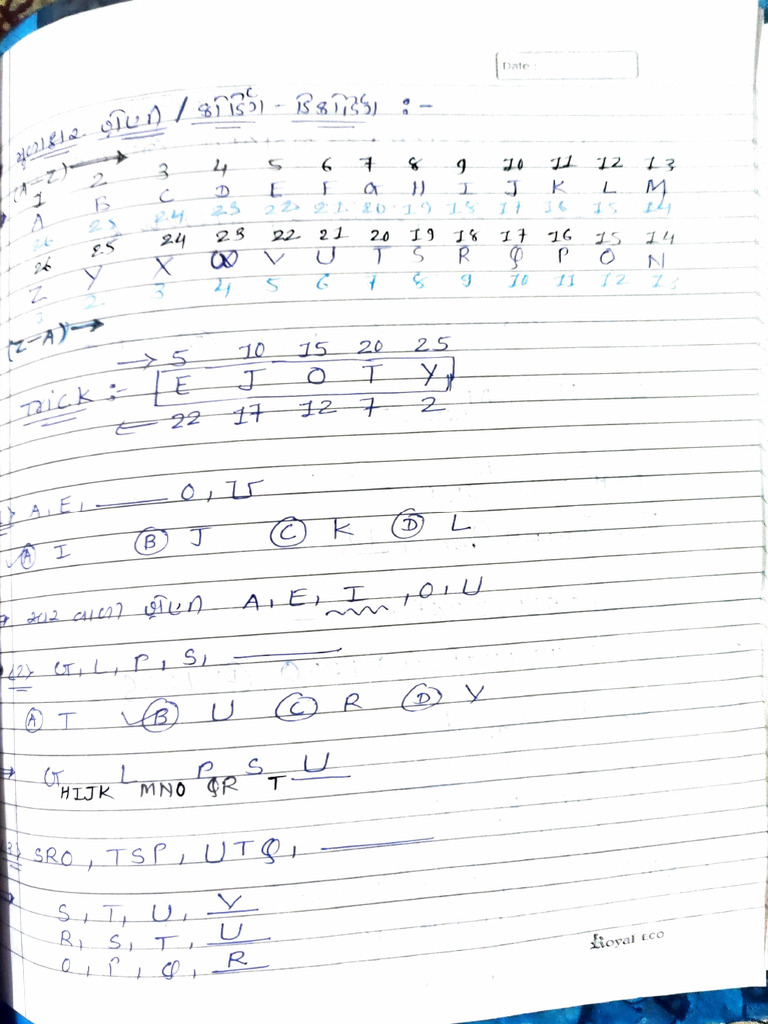 Date :
મુળાક્ષર શ્રેણી / કોડિંગ - ડિકોડિંગ :-
(A-Z) →
1 2 3 4 5 6 7 8 9 10 11 12 13
A B C D E F G H I J K L M
26 25 24 23 22 21 20 19 18 17 16 15 14
26 25 24 23 22 21 20 19 18 17 16 15 14
Z Y X W V U T S R Q P O N
1 2 3 4 5 6 7 8 9 10 11 12 13
(Z-A) →
→ 5 10 15 20 25
TRICK :- E J O T Y
← 22 17 12 7 2
1) A, E, ____ O, U
A I B J C K D L
→ શ્રેણી A, E, I, O, U
(2) G, L, P, S, ____
A T B U C R D V
→ G L P S U
HIJK MNO QR T
3) SRO, TSP, UTQ, ____
→ S, T, U, V
R, S, T, U
O, P, Q, R
Royal ECO